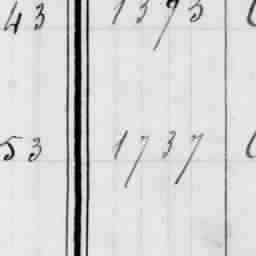 43 1395
53 1737